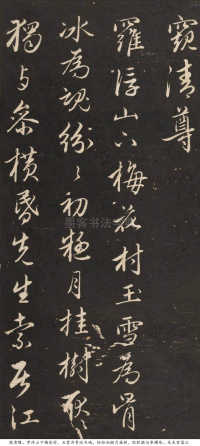 窺清尊
羅浮山下梅花村玉雪為骨
冰為魂紛〻初疑月挂樹耿
獨与參橫昏先生索居江
墨客书法
窥清樽。罗浮山下梅花村，玉雪为骨冰为魂。纷纷初疑月挂树，耿耿独与参横昏。先生索居江